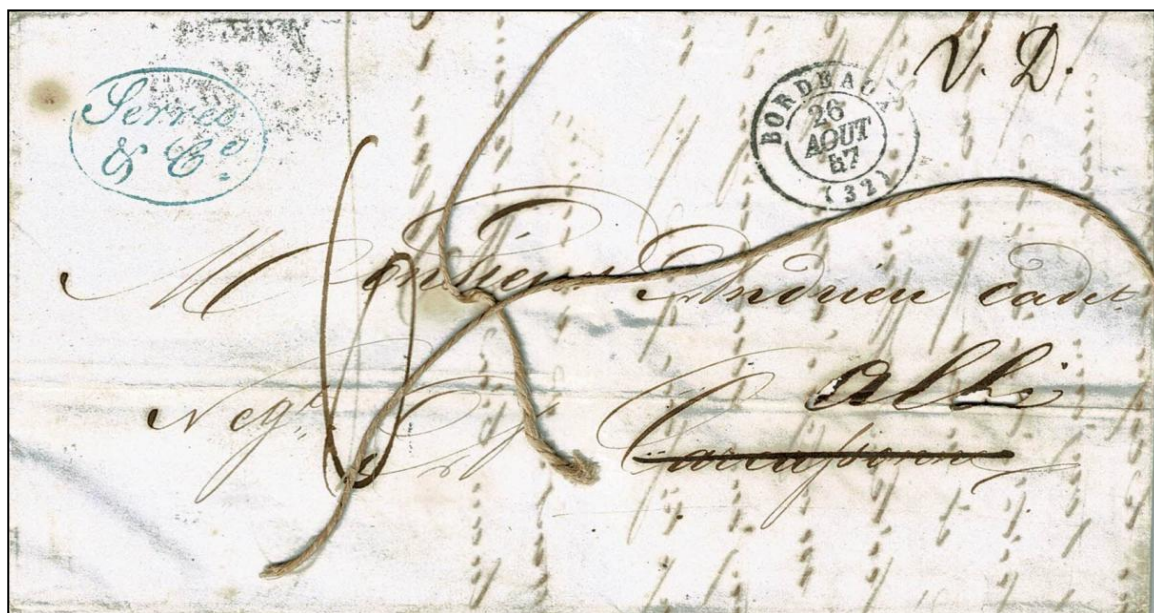 Serres
& Cº
V. D.
BORDEAUX
26
AOUT
57
(32)
Monsieur Andrieu cadet
Negt
Albi
Carcassonne